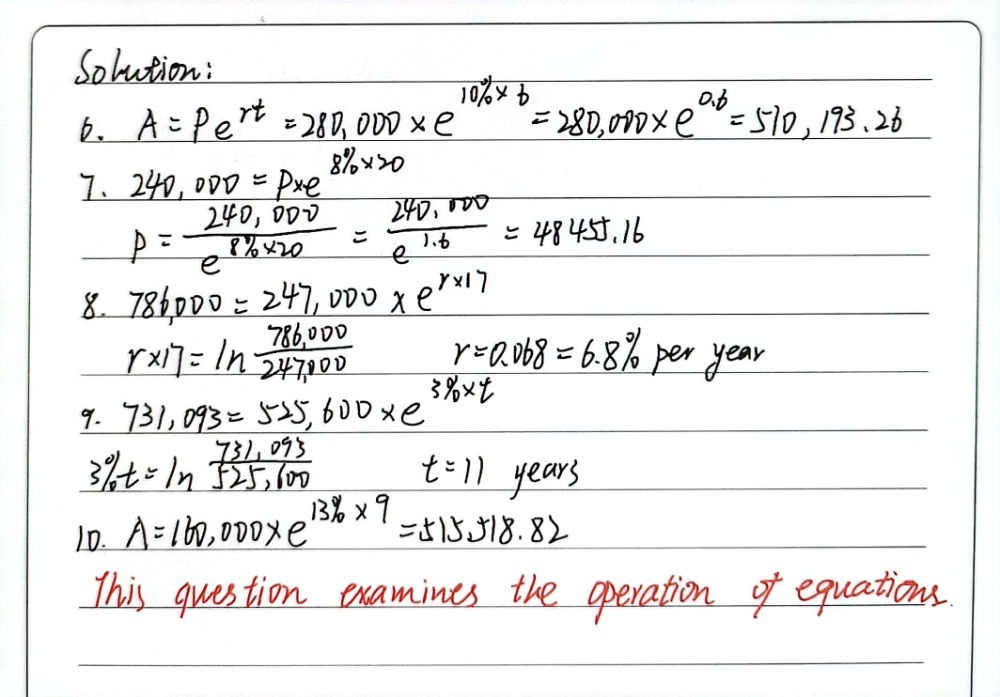 Solution:
6. A = Pe^rt = 280,000 × e^10%×6 = 280,000 × e^0.6 = 510,193.26
7. 240,000 = P×e^8%×20
P = 240,000 / e^8%×20 = 240,000 / e^1.6 = 48455.16
8. 786,000 = 247,000 × e^r×17
r×17 = ln 786,000 / 247,000 r=0.068 = 6.8% per year
9. 731,093 = 525,600 × e^3%×t
3%t = ln 731,093 / 525,600 t=11 years
10. A=160,000×e^13%×9 =515,518.82
This question examines the operation of equations.